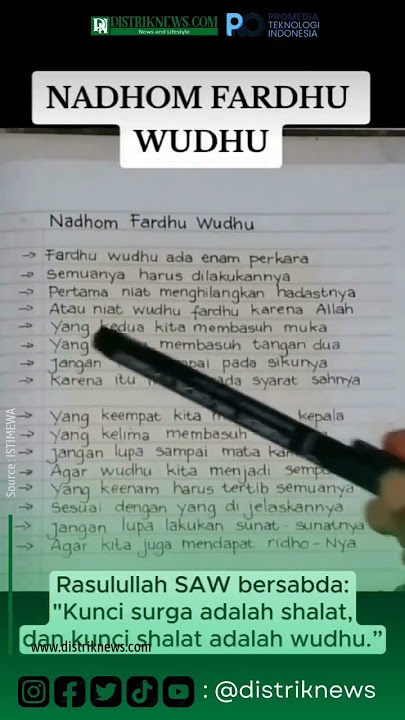 DISTRIKNEWS.COM
News and Lifestyle
PROMEDIA
TEKNOLOGI
INDONESIA
NADHOM FARDHU
WUDHU
Nadhom Fardhu Wudhu
→ Fardhu wudhu ada enam perkara
→ Semuanya harus dilakukannya
→ Pertama niat menghilangkan hadastnya
→ Atau niat wudhu fardhu karena Allah
→ Yang kedua kita membasuh muka
→ Yang membasuh tangan dua
→ Jangan pada sikunya
→ Karena itu syarat sahnya
→ Yang keempat kita kepala
→ Yang kelima membasuh
→ Jangan lupa sampai mata
→ Agar wudhu kita menjadi
→ Yang keenam harus tertib semuanya
→ Sesuai dengan yang di jelaskannya
→ Jangan lupa lakukan sunat-sunatnya
→ Agar kita juga mendapat ridho-Nya
Source : ISTIMEWA
Rasulullah SAW bersabda:
"Kunci surga adalah shalat,
dan kunci shalat adalah wudhu.”
www.distriknews.com
: @distriknews